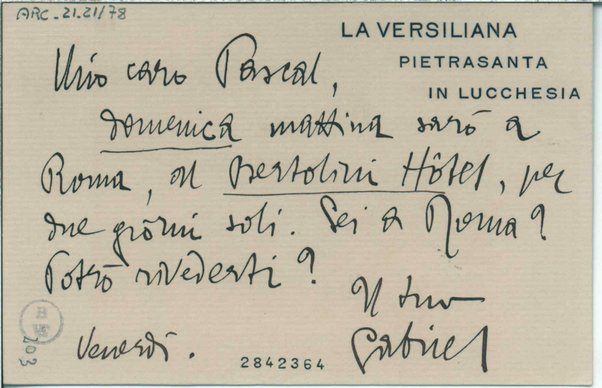 ARC.21.21/78
LA VERSILIANA
PIETRASANTA
IN LUCCHESIA
Mio caro Pascal,
domenica mattina sarò a
Roma, al Bertolini Hôtel, per
due giorni soli. Sei a Roma?
Potrò rivederti?
Il tuo
Gabriel
Venerdì.
2842364
103